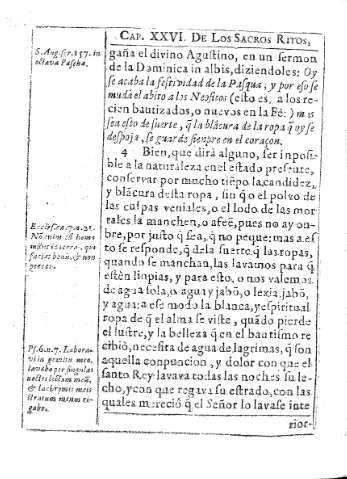 CAP. XXVI. DE LOS SACROS RITOS,
S. Aug. ser. 157. in
octava Pascha.
gaña el divino Agustino, en un sermon
de la Dominica in albis, diziendoles: Oy
se acaba la festividad de la Pasqua; y por eso se
muda el abito a los Neofitos (esto es, a los re-
cien bautizados, o nuevos en la Fè:) mas
sea esto de suerte, q̃ la blãcura de la ropa q̃ oy se
despoja, se guarde siempre en el coraçon.
4 Bien, que dirà alguno, ser inposi-
ble a la naturaleza en el estado presente,
conservar por mucho tiẽpo la candidez,
y blãcura desta ropa, sin q̃ o el polvo de
las culpas veniales, o el lodo de las mor-
tales la manchen, o afeẽ, pues no ay on-
bre, por justo q̃ sea, q̃ no peque: mas a es-
to se responde, q̃ de la suerte q̃ las ropas,
quando se manchan, las lavamos para q̃
estèn linpias, y para esto, o nos valemos
de agua sola, o agua y jabõ, o lexia, jabõ,
y agua: a ese modo la blanca, y espiritual
ropa de q̃ el alma se viste, quãdo pierde
el lustre, y la belleza q̃ en el bautismo re
cibiò, necesita de agua de lagrimas, q̃ son
aquella conpuncion, y dolor con que el
santo Rey lavava todas las noches su le-
cho, y con que regava su estrado, con las
quales mereciò q̃ el Señor lo lavase inte
rior-
Eccles.
Nõ enim est homo
iustus in terra, qui
faciat bonũ, & non
peccet.
Ps. 6. n. 7. Labora-
vi in gemitu meo,
lavabo per singulas
noctes lectum meũ,
& lachrymis meis
stratum meum ri-
gabo.